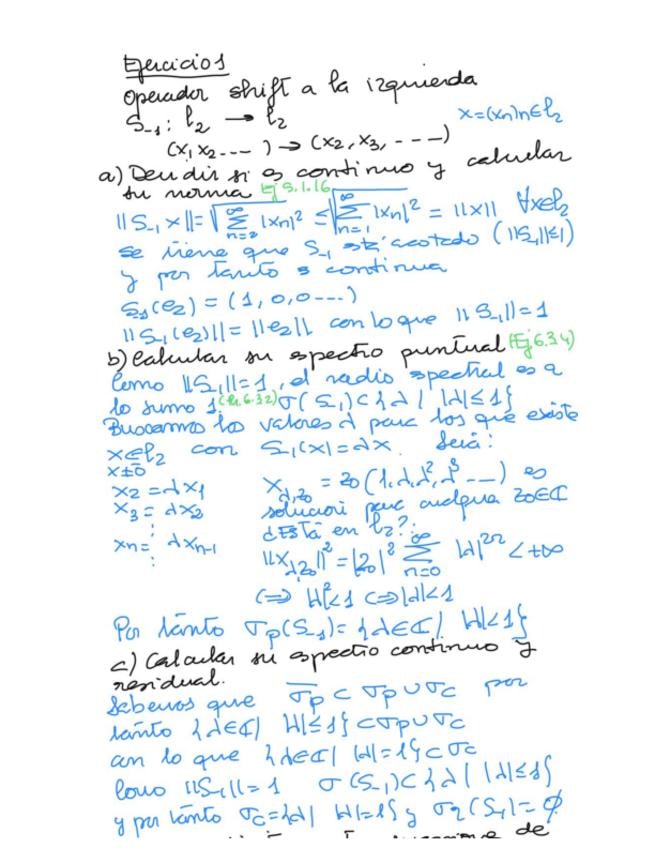 Ejercicios
Operador shift a la izquierda
S₋₁: l₂ → l₂ x=(xn)n∈l₂
(x₁ x₂ ... ) → (x₂, x₃, - - -)
a) Decidir si es continuo y calcular
su norma Ej 5.1.16
||S₋₁x|| = √(∑_{n=2}^∞ |xn|²) ≤ √(∑_{n=1}^∞ |xn|²) = ||x|| ∀x∈l₂
se tiene que S₋₁ está acotado (||S₋₁||≤1)
y por tanto es continua
S₋₁(e₂) = (1, 0, 0 ---)
||S₋₁(e₂)|| = ||e₂|| con lo que ||S₋₁|| = 1
b) Calcular su espectro puntual (Ej 6.3.4)
Como ||S₋₁||=1, el radio spectral es a
lo sumo 1. 6.3.2) σ(S₋₁) ⊂ {λ | |λ|≤1}
Buscamos los valores λ para los que existe
x∈l₂ con S₋₁(x)=λx. Será:
x≠0
x₂ = λx₁ x_{λ,z₀} = z₀(1,λ,λ²,λ³ ---) es
x₃ = λx₂ solución para cualquier z₀∈ℂ
⋮ ¿Está en l₂?
xn = λxn-1 ||x_{λ,z₀}||² = |z₀|² ∑_{n=0}^∞ |λ|²ⁿ < +∞
⋮
⟺ |λ|²<1 ⟺ |λ|<1
Por tanto σp(S₋₁) = {λ∈ℂ | |λ|<1}
c) Calcular su espectro continuo y
residual.
Sabemos que σ̄p ⊂ σp∪σc por
tanto {λ∈ℂ| |λ|≤1} ⊂ σp∪σc
con lo que {λ∈ℂ| |λ|=1} ⊂ σc
Como ||S₋₁||=1 σ(S₋₁) ⊂ {λ | |λ|≤1}
y por tanto σc={λ| |λ|=1} y σr(S₋₁)=∅
de